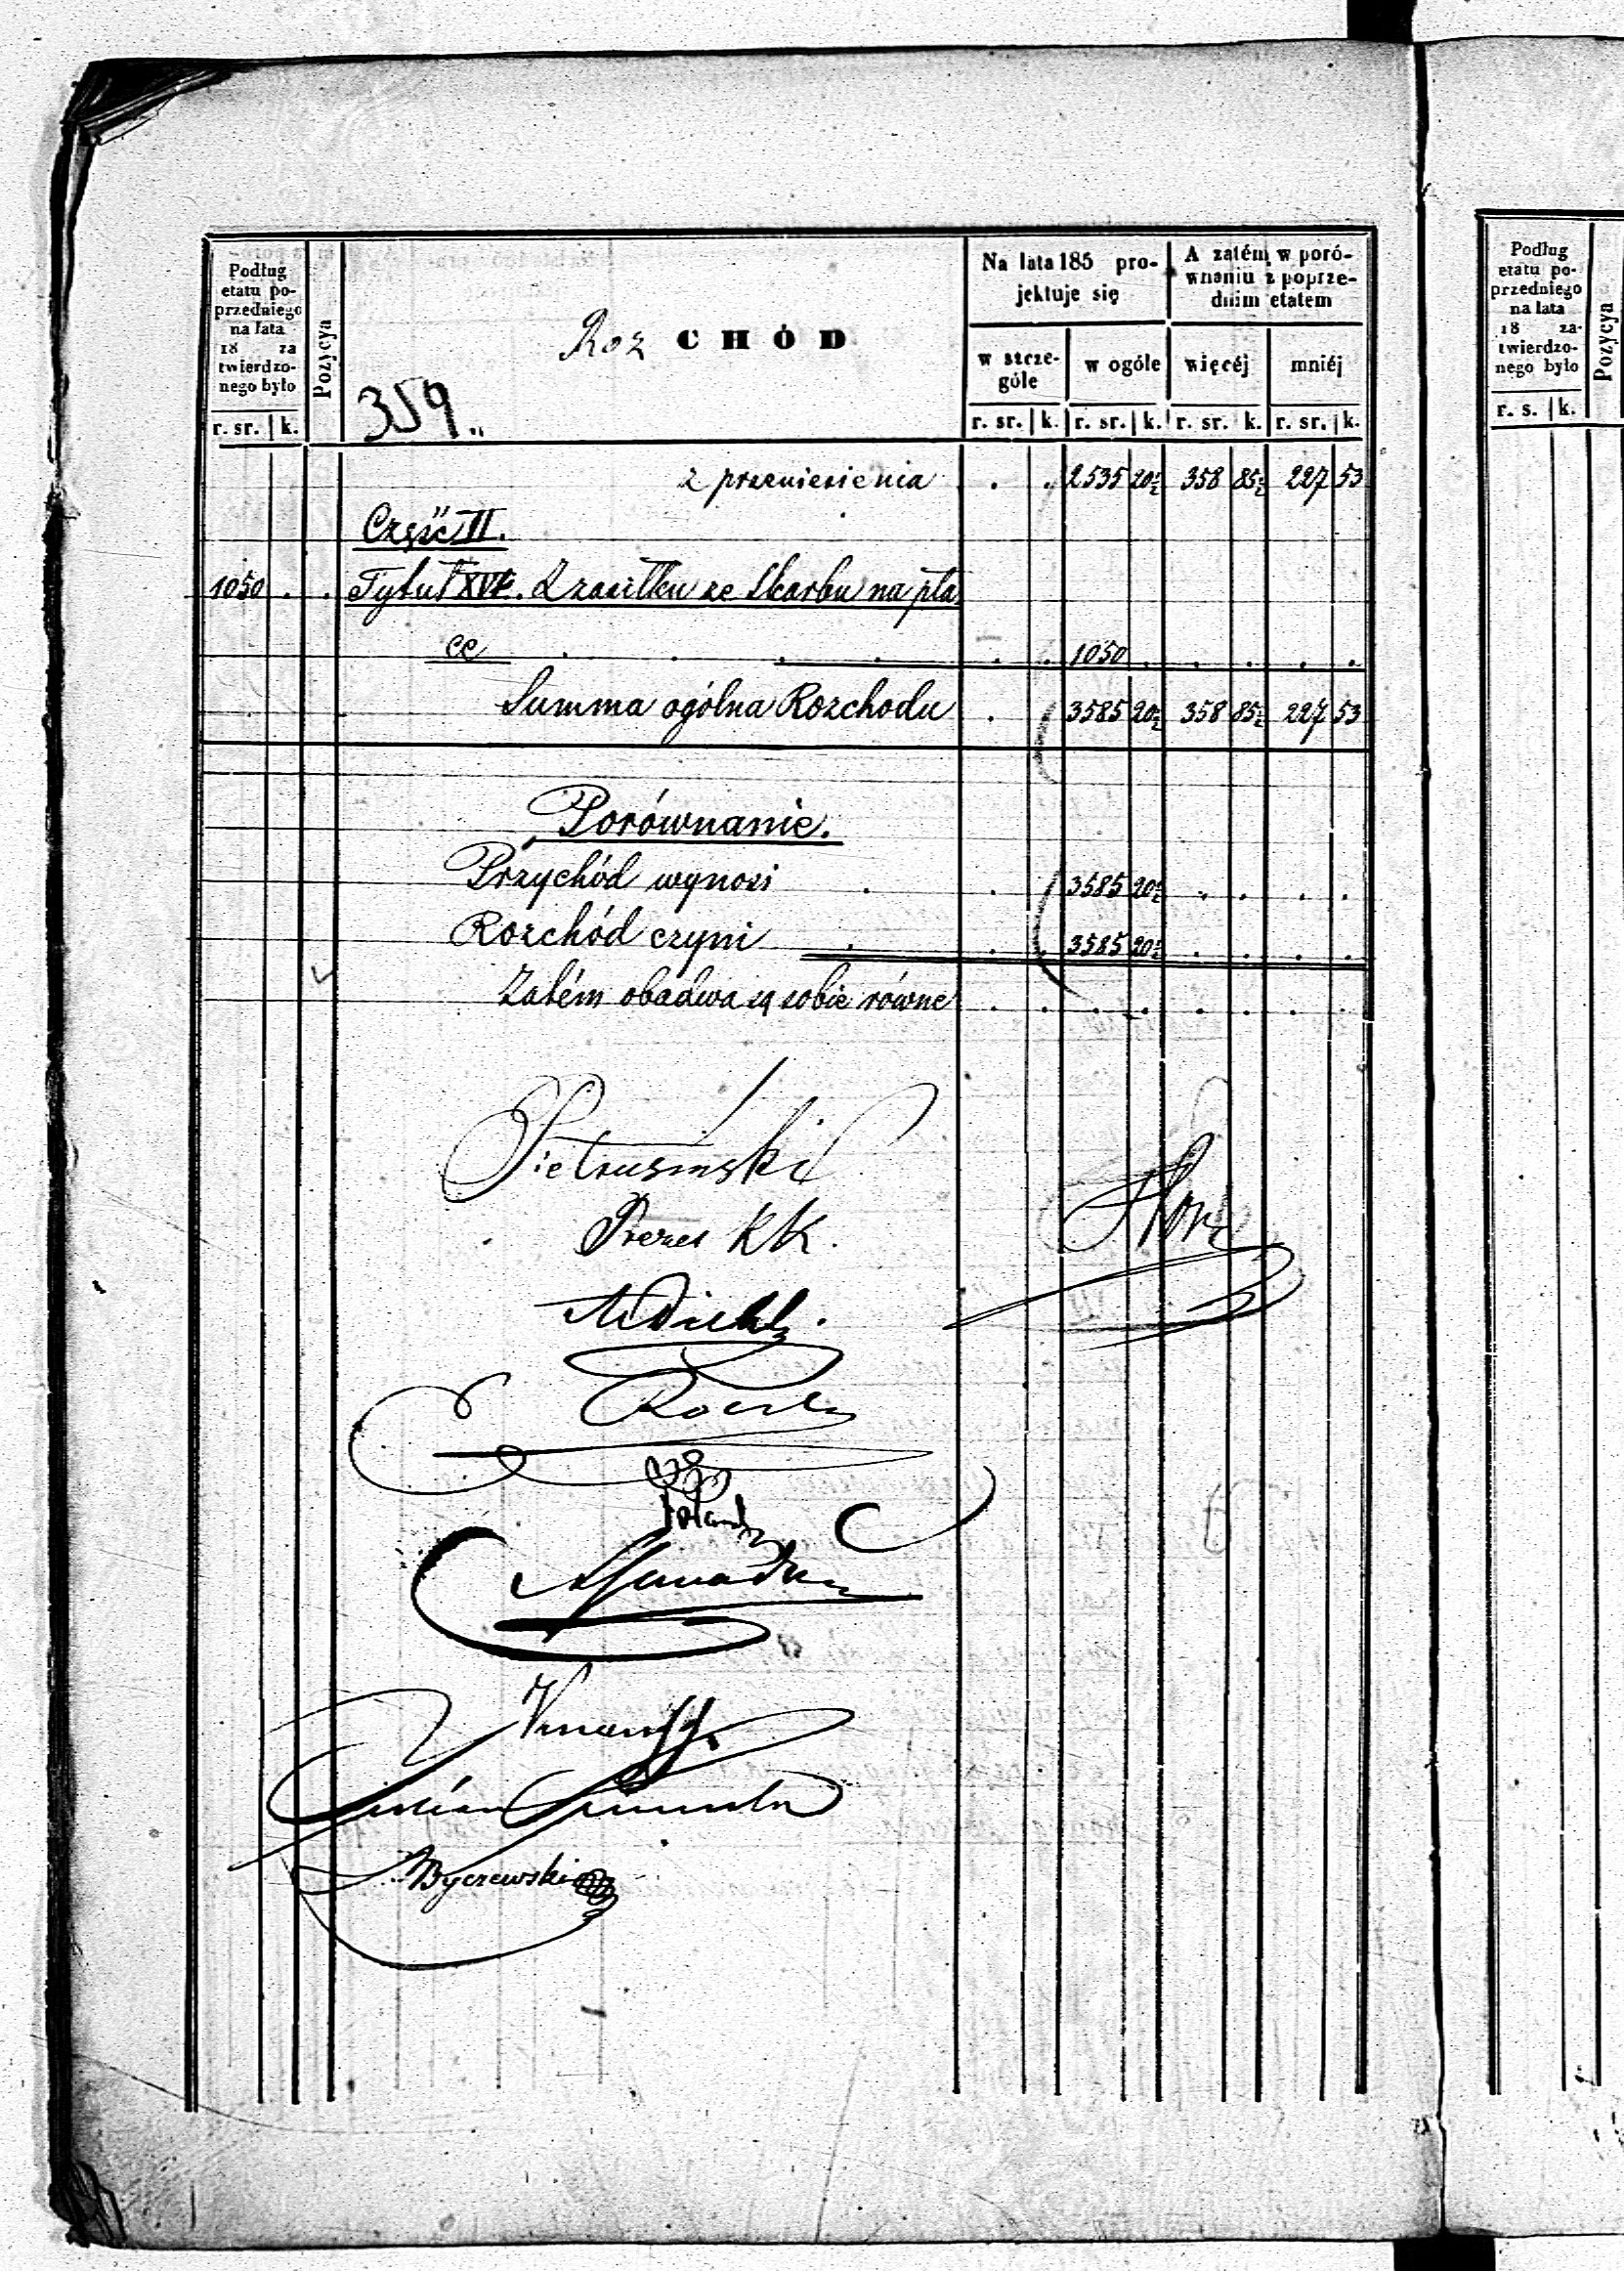 Podług
etatu po-
przedniego
na lata
18 za
twierdzo-
nego było
r. sr. k.
Pozycya
Roz CHÓD
359.
Na lata 185 pro-
jektuje się
w szcze-
góle
r. sr. k.
w ogóle
r. sr. k.
A zatém w poró-
wnaniu z poprze-
dnim etatem
więcéj
r. sr. k.
mniéj
r. sr. k.
z przeniesienia . . 2535 20½ 358 85½ 227 53
Część II.
1050 . . Tytuł XVI. Z zasiłku ze Skarbu na pła
ce . . . . . . 1050 . . . . .
Summa ogólna Rozchodu . 3585 20½ 358 85½ 227 53
Porównanie.
Przychód wynosi . . 3585 20½ . . . .
Rozchód czyni . . 3585 20½ . . . .
Zatém obadwa są sobie równe . . . . . . . .
Pietrusiński
Prezes KK.
Byczewski
Podług
etatu po-
przedniego
na lata
18 za-
twierdzo-
nego było
r. s. k.
Pozycya